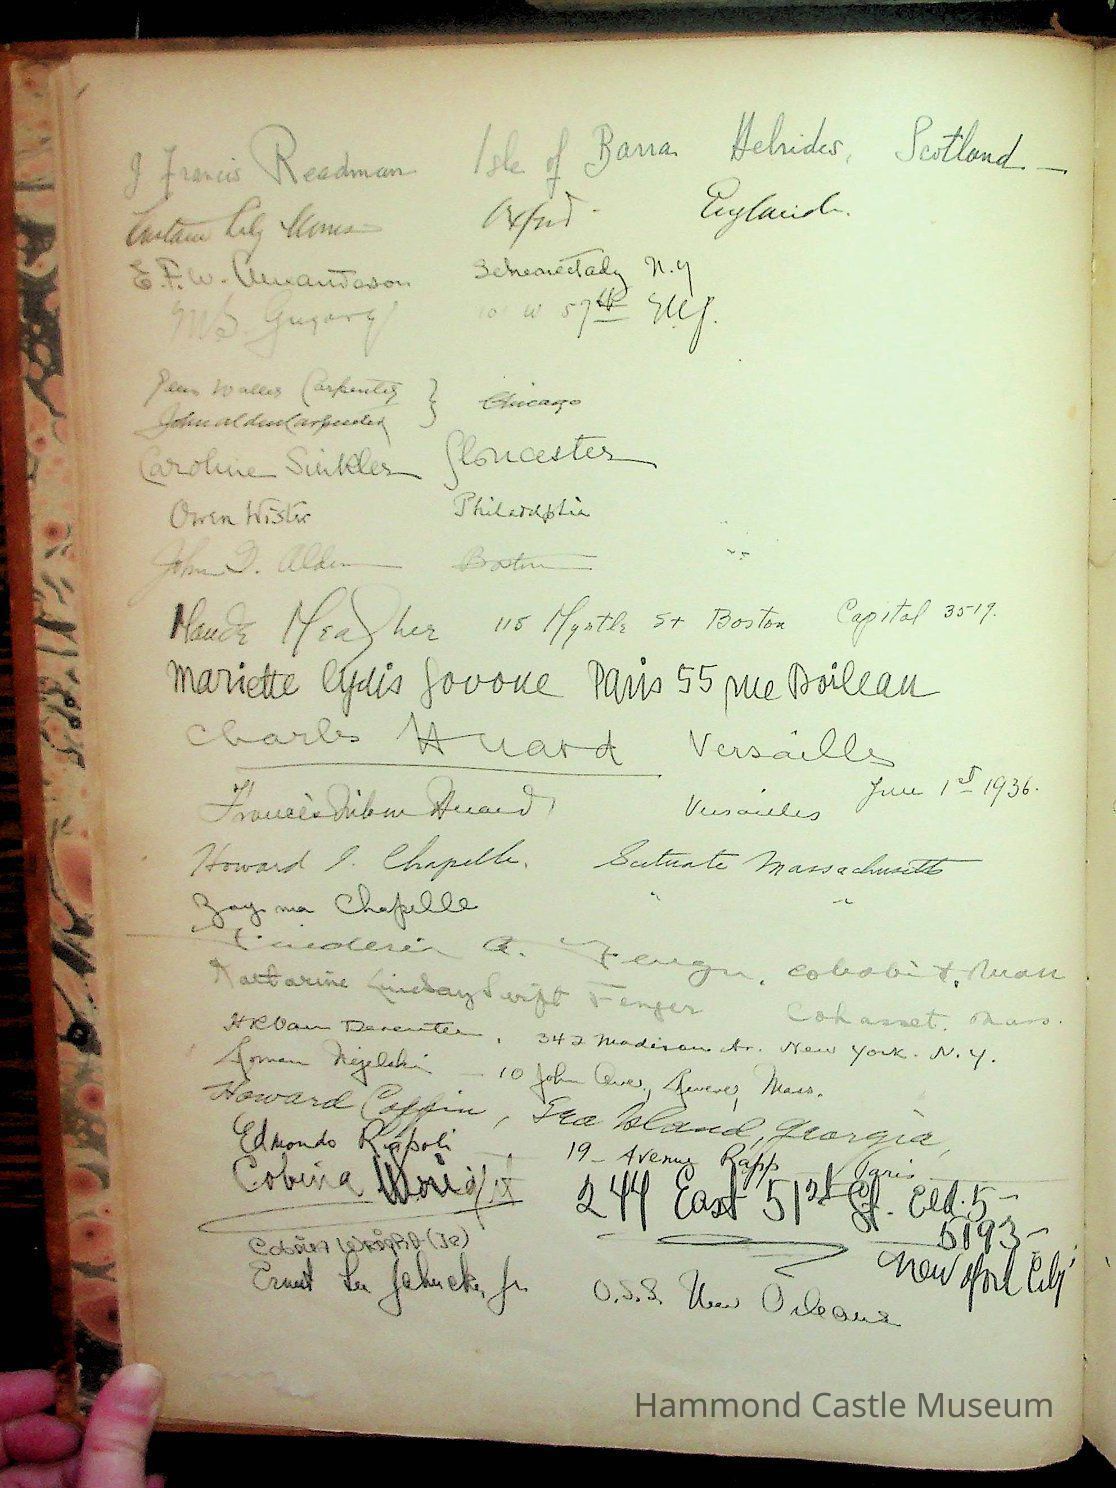 J Francis Readman Isle of Barra Hebrides, Scotland
Oxford England
E.F.W. Alexanderson Schenectady N.Y
Gregory 101 W 57th N.Y.
Carpenter
John Alden Carpenter } Chicago
Caroline Sinkler Gloucester
Owen Wister Philadelphia
John G. Alden Boston
Maude Meagher 115 Myrtle St Boston Capitol 3519.
Mariette Lydis Govone Paris 55 rue Boileau
Charles Huard Versailles
June 1st 1936.
Frances Wilson Huard Versailles
Howard I. Chapelle. Scituate Massachusetts
Chapelle " "
A. Fenger. Cohasset, Mass
Katharine Lindsay Swift Fenger Cohasset. Mass.
H R Van Deventer, 342 Madison Av. New York. N.Y.
Roman — 10 John Ave, Revere, Mass.
Howard Coffin, Sea Island, Georgia,
Edmondo Rispoli 19 - Avenue Rapp Paris
Cobina Wright 244 East 51st St. Eld. 5-
5193 -
Cobina Wright (Jr) New York City
Ernest Lee Jahncke, Jr. U.S.S. New Orleans
Hammond Castle Museum